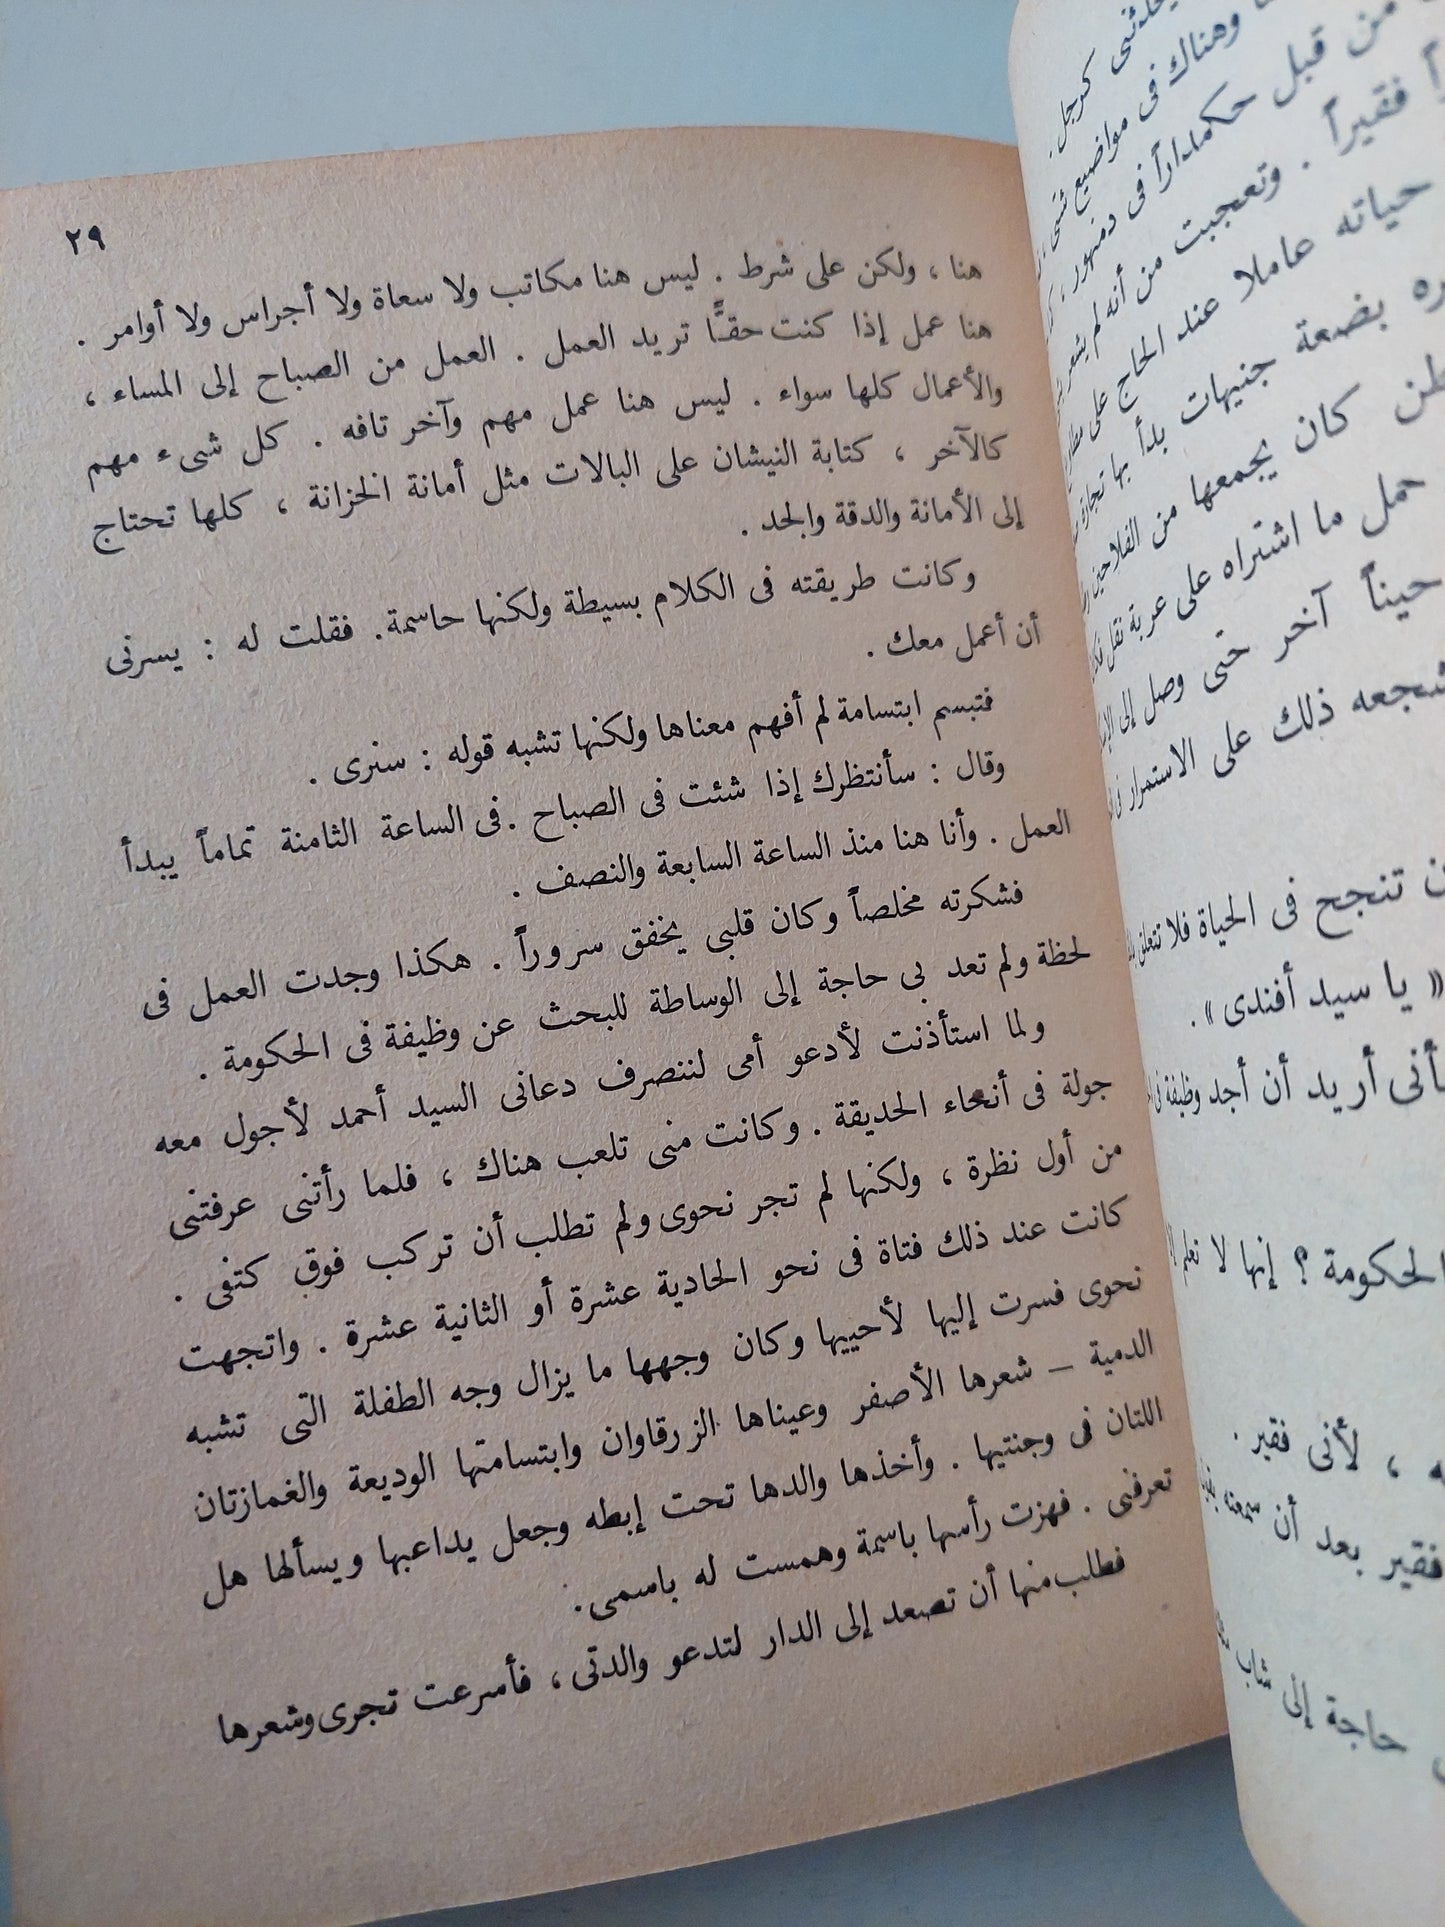 يحدثنى كرجل.
وهناك فى مواضيع شتى
من قبل حكمداراً فى دمنهور،
فقيراً. وتعجبت من أنه لم يشعر
حياته عاملا عند الحاج على
بضعة جنيهات بدأ بها تجارة
كان يجمعها من الفلاحين
حمل ما اشتراه على عربة نقل
حيناً آخر حتى وصل إلى
ذلك على الاستمرار فى
تنجح فى الحياة فلا تتعلق
« يا سيد أفندى ».
أريد أن أجد وظيفة فى
الحكومة ؟ إنها لا تعلم
، لأنى فقير.
فقير بعد أن سمعته
حاجة إلى شاب
٢٩
هنا ، ولكن على شرط . ليس هنا مكاتب ولا سعاة ولا أجراس ولا أوامر .
هنا عمل إذا كنت حقًّا تريد العمل . العمل من الصباح إلى المساء ،
والأعمال كلها سواء . ليس هنا عمل مهم وآخر تافه . كل شىء مهم
كالآخر ، كتابة النيشان على البالات مثل أمانة الخزانة ، كلها تحتاج
إلى الأمانة والدقة والجد .
وكانت طريقته فى الكلام بسيطة ولكنها حاسمة . فقلت له : يسرنى
أن أعمل معك .
فتبسم ابتسامة لم أفهم معناها ولكنها تشبه قوله : سنرى .
وقال : سأنتظرك إذا شئت فى الصباح . فى الساعة الثامنة تماماً يبدأ
العمل . وأنا هنا منذ الساعة السابعة والنصف .
فشكرته مخلصاً وكان قلبى يخفق سروراً . هكذا وجدت العمل فى
لحظة ولم تعد بى حاجة إلى الوساطة للبحث عن وظيفة فى الحكومة .
ولما استأذنت لأدعو أمى لننصرف دعانى السيد أحمد لأجول معه
جولة فى أنحاء الحديقة . وكانت منى تلعب هناك ، فلما رأتنى عرفتنى
من أول نظرة ، ولكنها لم تجر نحوى ولم تطلب أن تركب فوق كتفى .
كانت عند ذلك فتاة فى نحو الحادية عشرة أو الثانية عشرة . واتجهت
نحوى فسرت إليها لأحييها وكان وجهها ما يزال وجه الطفلة التى تشبه
الدمية – شعرها الأصفر وعيناها الزرقاوان وابتسامتها الوديعة والغمازتان
اللتان فى وجنتيها . وأخذها والدها تحت إبطه وجعل يداعبها ويسألها هل
تعرفنى . فهزت رأسها باسمة وهمست له باسمى .
فطلب منها أن تصعد إلى الدار لتدعو والدتى ، فأسرعت تجرى وشعرها